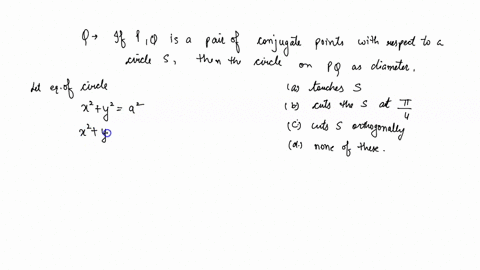 Q→ If P,Q is a pair of conjugate points with respect to a
circle S, then the circle on PQ as diameter.
Let eq. of circle
x² + y² = a²
x² + y
(a) touches S
(b) cuts the S at π/4
(c) cuts S orthogonally
(d) none of these.